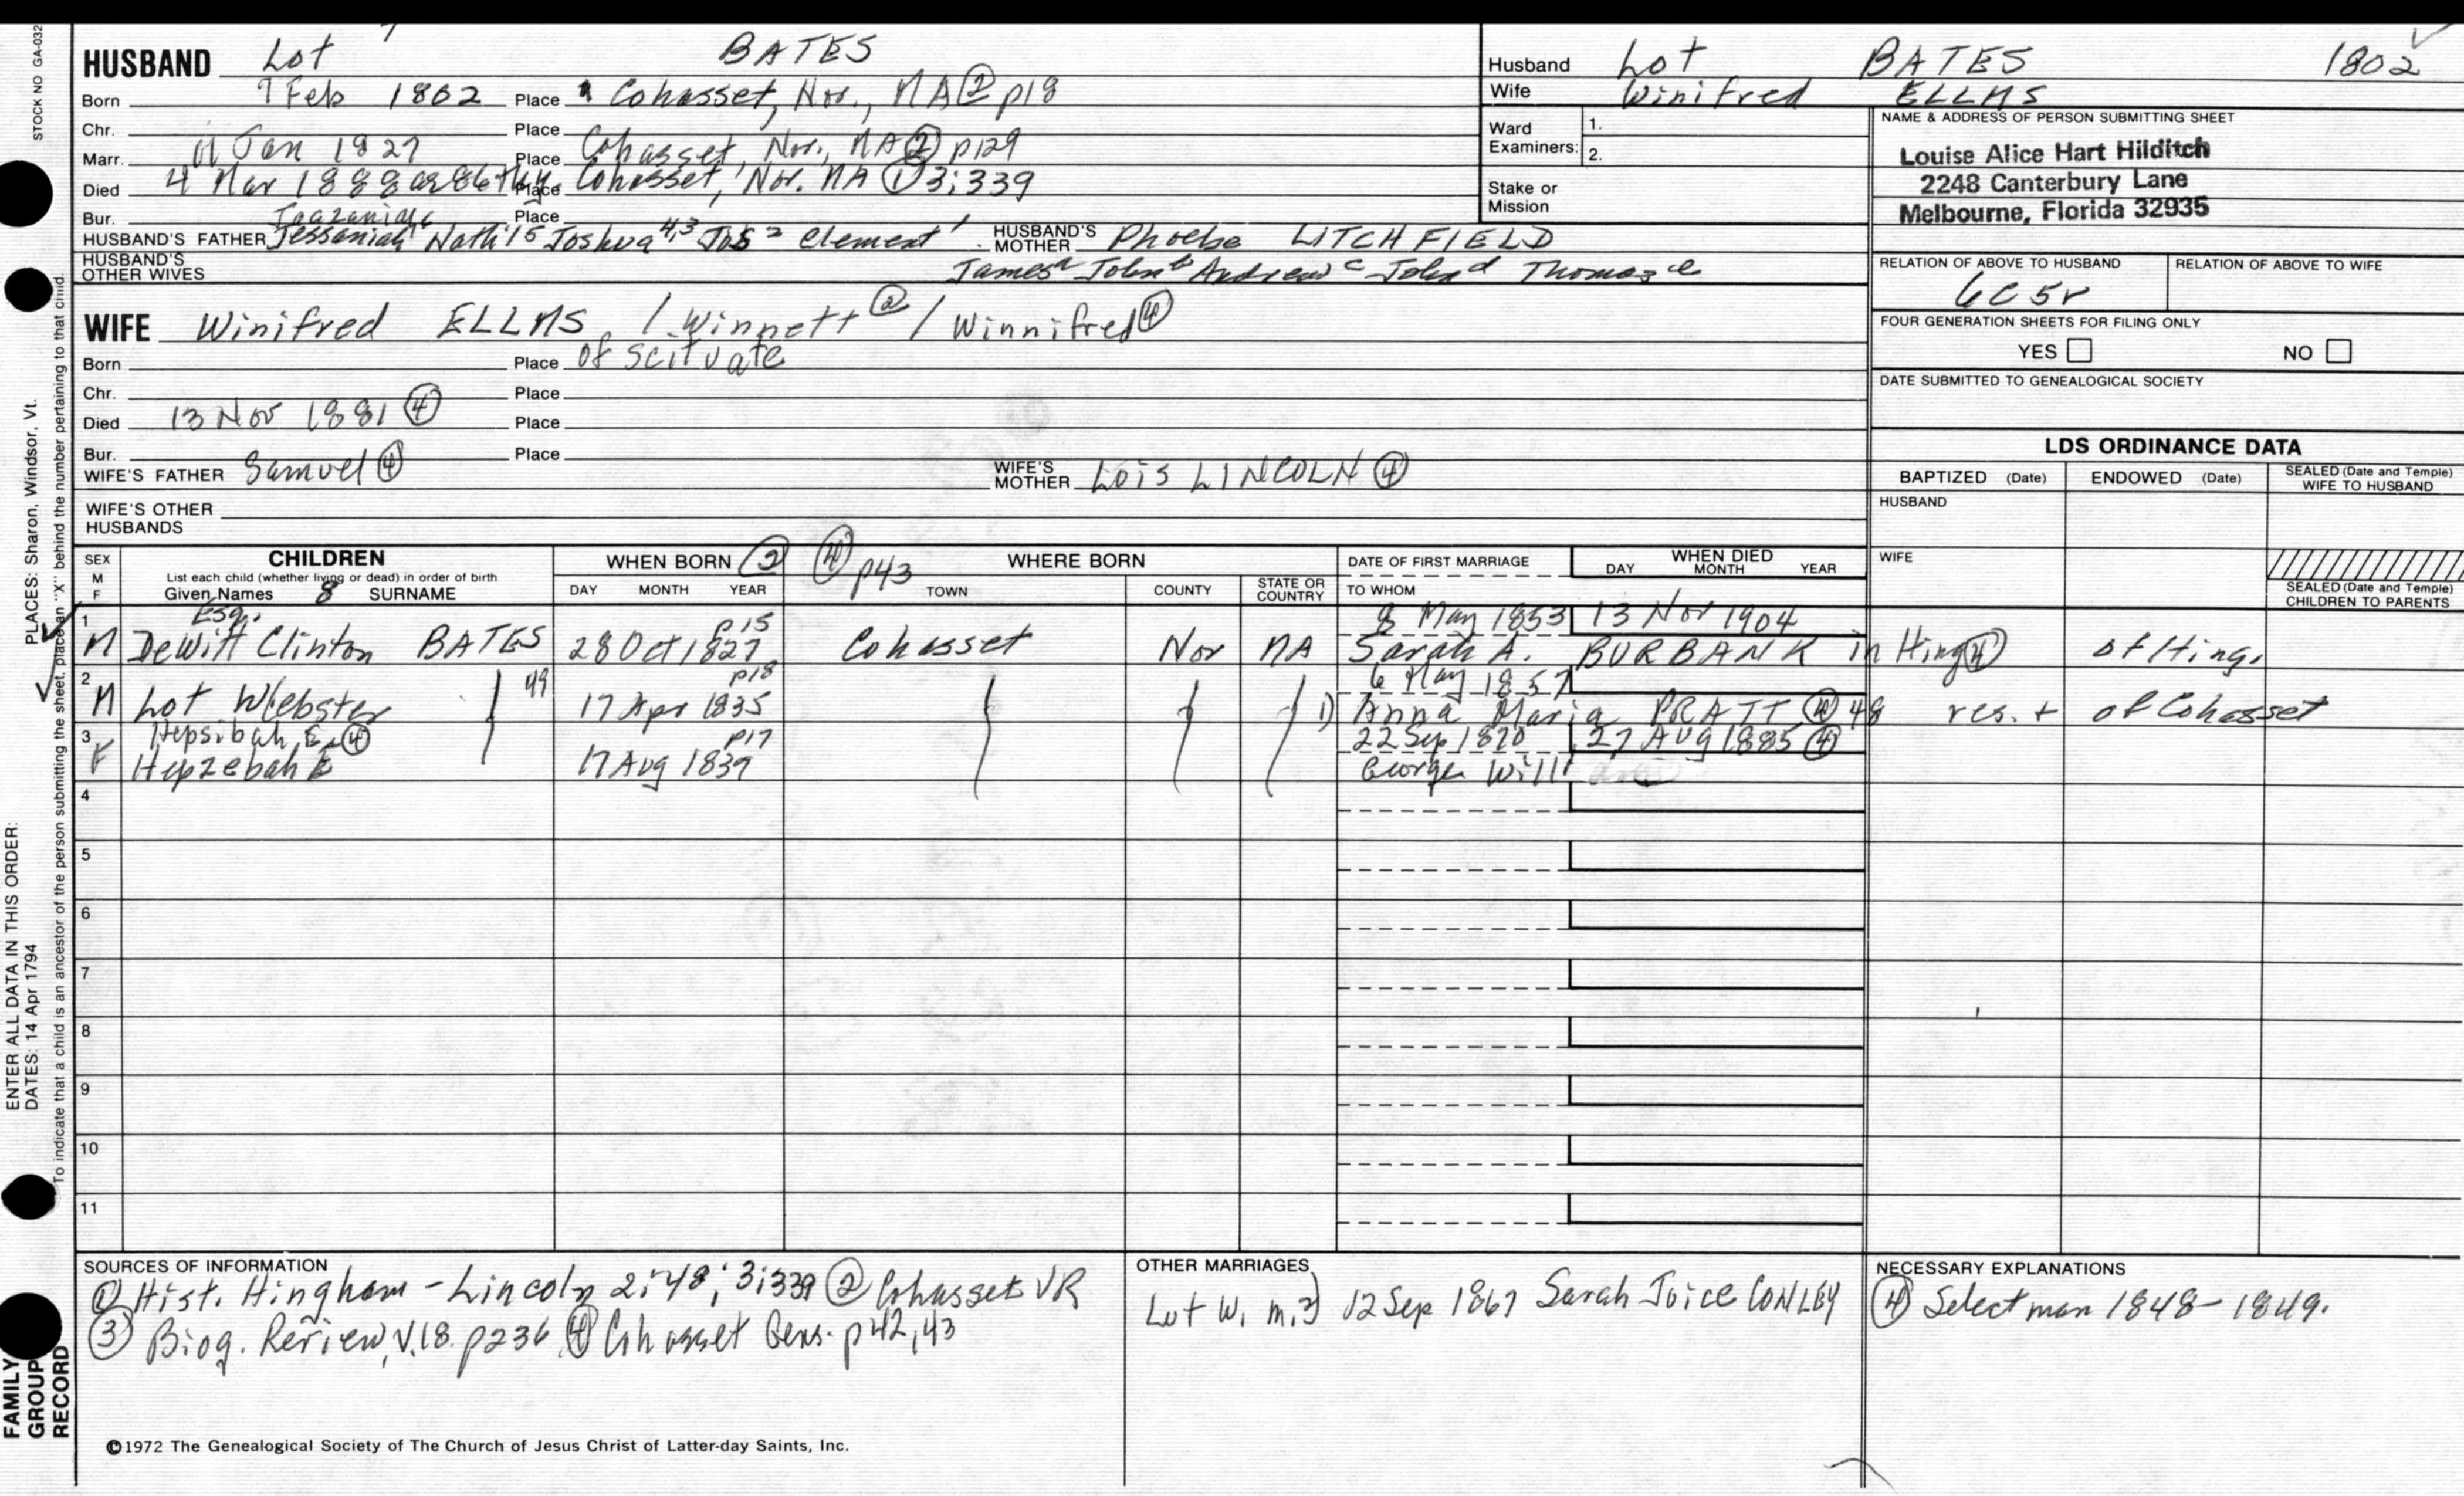 STOCK NO GA-032
HUSBAND Lot 7 BATES
Born 7 Feb 1802 Place Cohasset, Nor., MA ② p18
Chr. Place
Marr. 11 Jan 1827 Place Cohasset, Nor., MA ② p129
Died 4 Mar 1888 Place Cohasset, Nor. MA ① 3:339
Bur. Place
Jaazaniah
HUSBAND'S FATHER Jessaniah 6 Nath'l 5 Joshua 4,3 Jos 2 Clement 1 HUSBAND'S MOTHER Phoebe LITCHFIELD
HUSBAND'S OTHER WIVES
James a John b Andrew c John d Thomas e
WIFE Winifred ELLMS / Winnett ② / Winnifred ④
Born Place of Scituate
Chr. Place
Died 13 Nov 1881 ④ Place
Bur. Place
WIFE'S FATHER Samuel ④ WIFE'S MOTHER Lois LINCOLN ④
WIFE'S OTHER HUSBANDS
Husband Lot BATES 1802
Wife Winifred ELLMS
Ward Examiners: 1. 2.
Stake or Mission
NAME & ADDRESS OF PERSON SUBMITTING SHEET
Louise Alice Hart Hilditch
2248 Canterbury Lane
Melbourne, Florida 32935
RELATION OF ABOVE TO HUSBAND RELATION OF ABOVE TO WIFE
6C5r
FOUR GENERATION SHEETS FOR FILING ONLY
YES NO
DATE SUBMITTED TO GENEALOGICAL SOCIETY
LDS ORDINANCE DATA
BAPTIZED (Date) ENDOWED (Date) SEALED (Date and Temple) WIFE TO HUSBAND
HUSBAND
WIFE
SEALED (Date and Temple) CHILDREN TO PARENTS
SEX M F
CHILDREN
List each child (whether living or dead) in order of birth
Given Names 8 SURNAME
WHEN BORN ② ④ p43
DAY MONTH YEAR
WHERE BORN
TOWN COUNTY STATE OR COUNTRY
DATE OF FIRST MARRIAGE
TO WHOM
WHEN DIED
DAY MONTH YEAR
1 Esq. p15 8 May 1853 13 Nov 1904
M DeWitt Clinton BATES 28 Oct 1827 Cohasset Nor MA Sarah A. BURBANK in Hing ④ of Hing.
2 49 p18 6 May 1857
M Lot Webster 17 Apr 1835 1) Anna Maria PRATT ④ 48 res. + of Cohasset
3 Hepsibah E. ④ p17 22 Sep 1870 27 Aug 1885 ④
F Hepzebah E 17 Aug 1839 George Will
4
5
6
7
8
9
10
11
SOURCES OF INFORMATION
① Hist. Hingham - Lincoln 2:48; 3:339 ② Cohasset VR
③ Biog. Review, V.18. p236 ④ Cohasset Gens. p42,43
OTHER MARRIAGES
Lot W. m. 2) 12 Sep 1867 Sarah Joice CONLEY
NECESSARY EXPLANATIONS
④ Selectman 1848-1849.
©1972 The Genealogical Society of The Church of Jesus Christ of Latter-day Saints, Inc.
FAMILY GROUP RECORD
ENTER ALL DATA IN THIS ORDER:
DATES: 14 Apr 1794
PLACES: Sharon, Windsor, Vt.
To indicate that a child is an ancestor of the person submitting the sheet, place an "X" behind the number pertaining to that child.